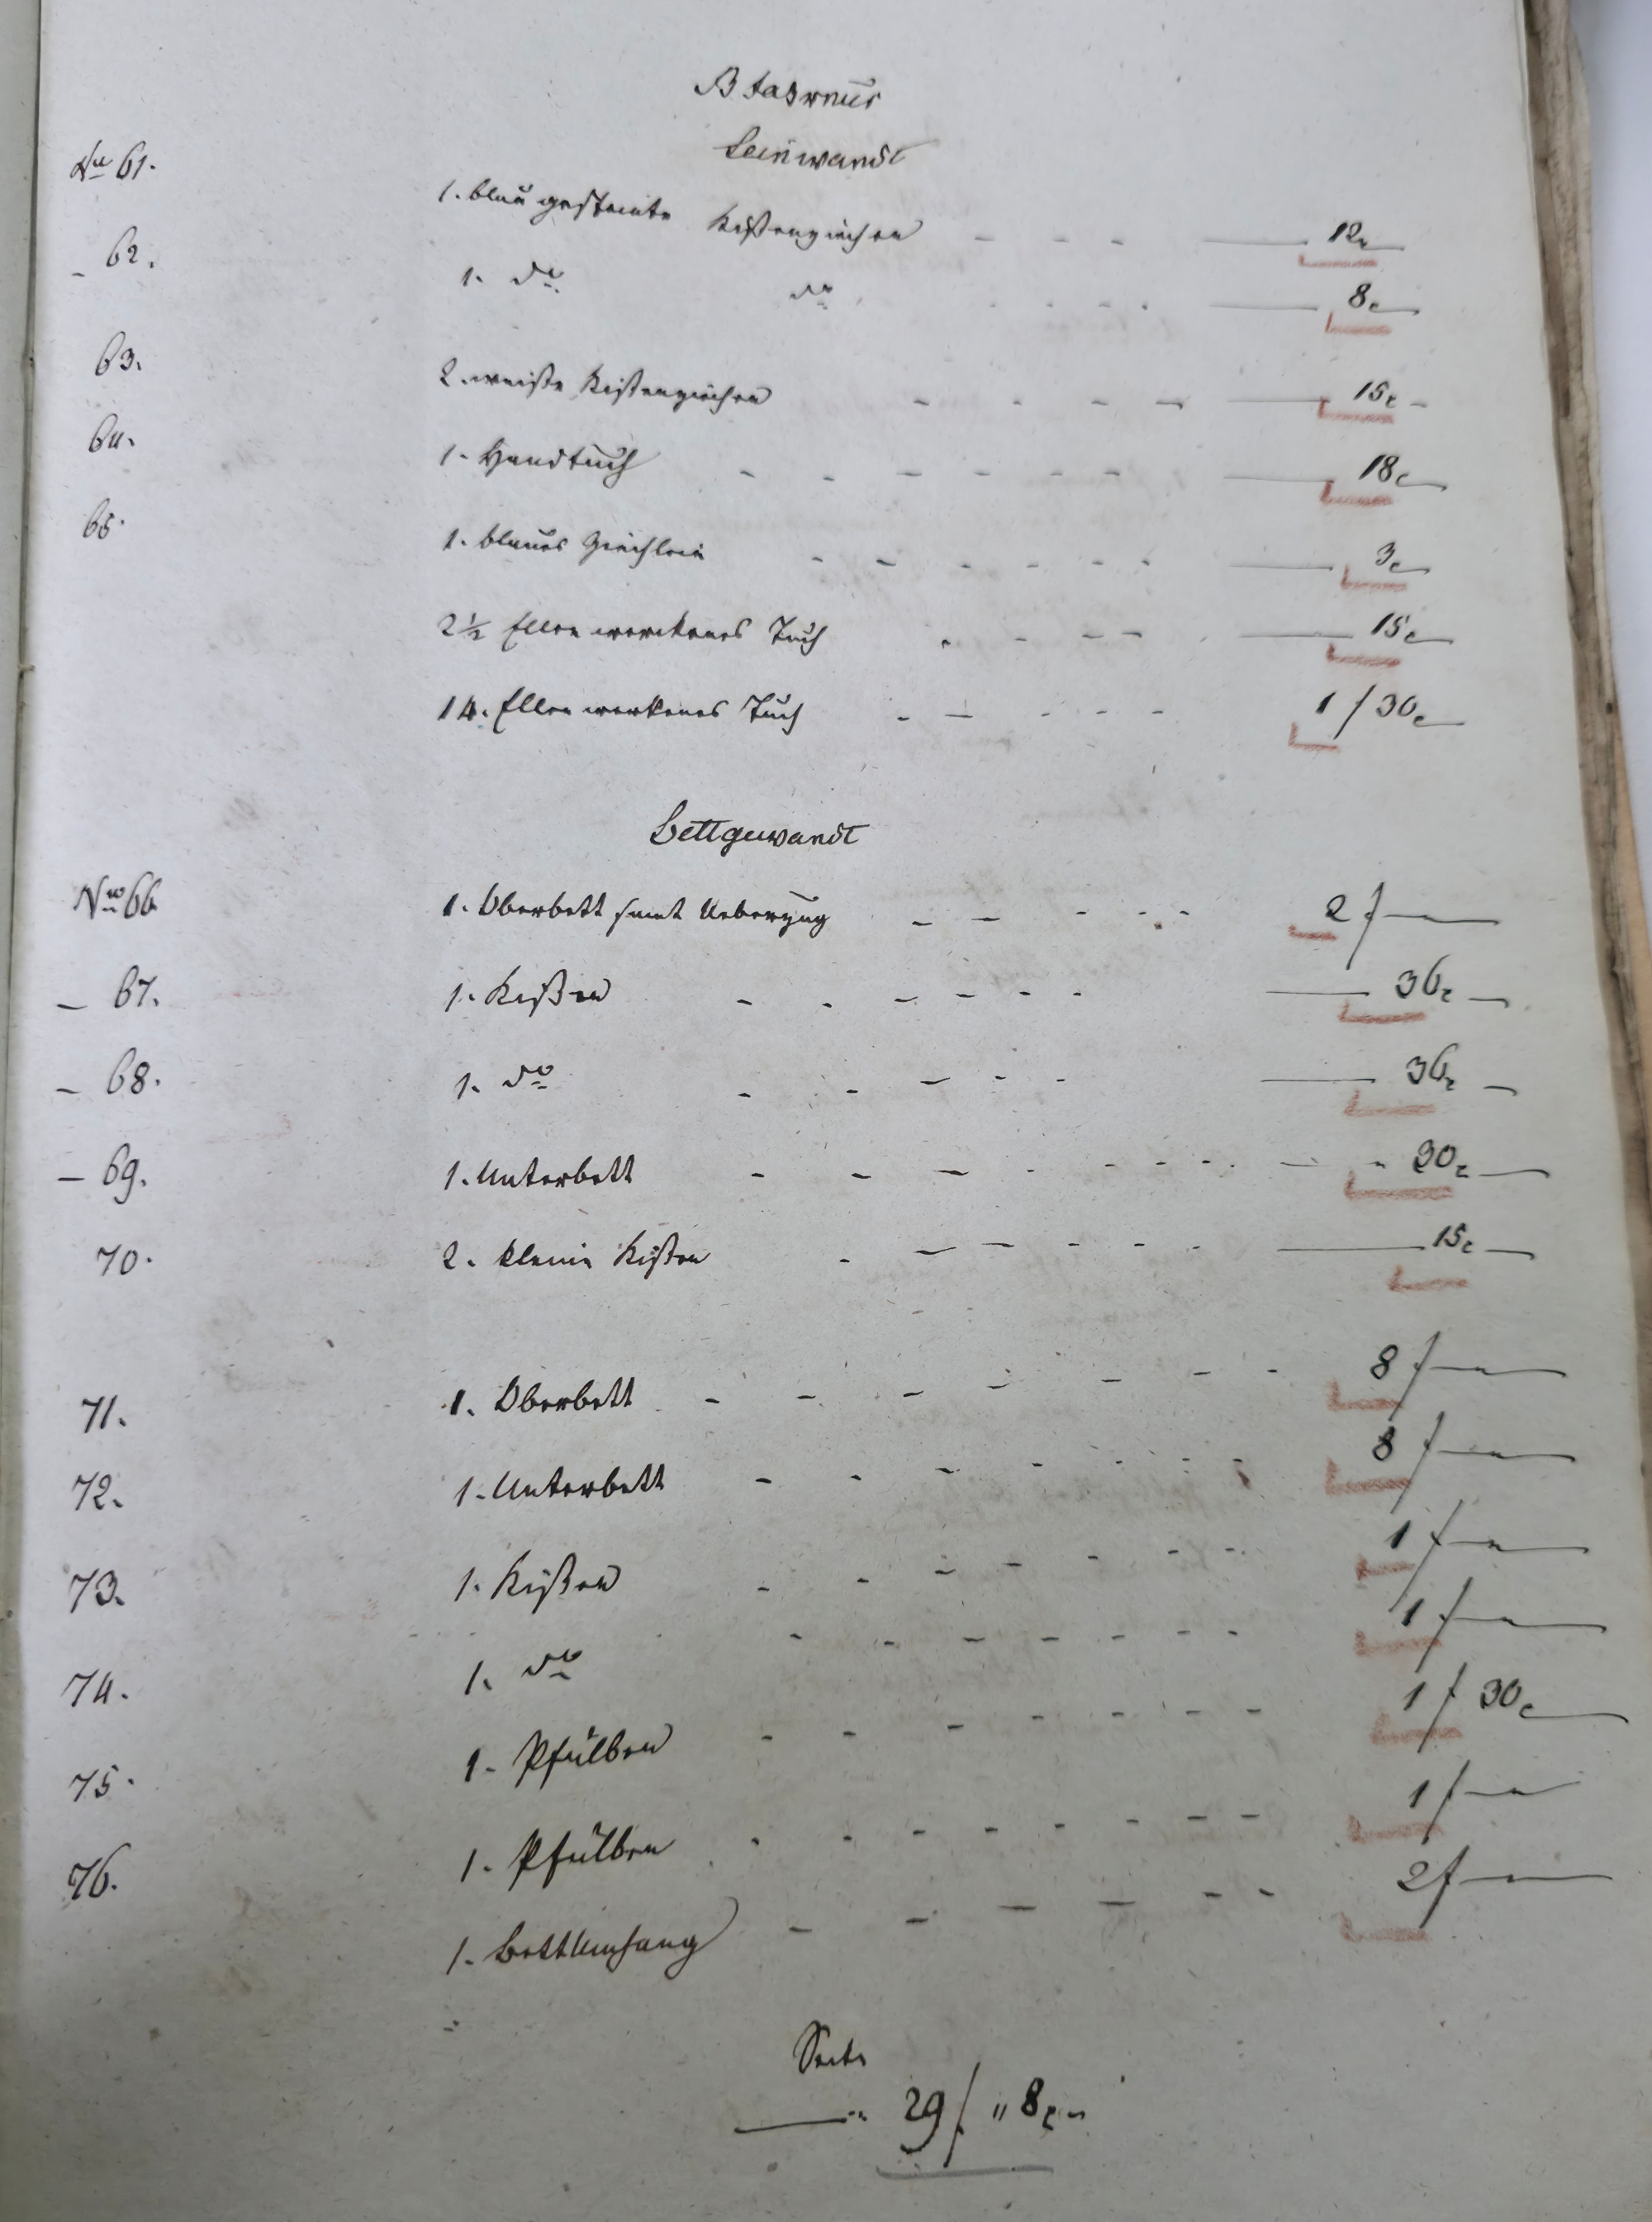 Leinwandt
No 61. 1. blau gestreinte Kißenziechen - - - 12 x
- 62. 1. do do - - - - 8 x
63. 2. weiße Kißenziechen - - - - 15 x
64. 1. Handtuch - - - - - - 18 x
65. 1. blaues Ziechlein - - - - - - 3 x
2½ Ellen werckenes Tuch - - - - 15 x
14. Ellen werkenes Tuch - - - - - 1 f 30 x
Bettgewandt
No 66 1. Oberbett samt Ueberzug - - - - - 2 f —
- 67. 1. Kißen - - - - - - 36 x
- 68. 1. do - - - - - 36 x
- 69. 1. Unterbett - - - - - - - 30 x
70. 2. kleine Kißen - - - - - - 15 x
71. 1. Oberbett - - - - - - - 8 f —
72. 1. Unterbett - - - - - - - 8 f —
73. 1. Kißen - - - - - - - 1 f —
74. 1. do - - - - - - - 1 f —
75. 1. Pfülben - - - - - - - 1 f 30 x
76. 1. Pfülben - - - - - - - 1 f —
1. Bettumhang - - - - - - 2 f —
Seite
29 f " 8 x